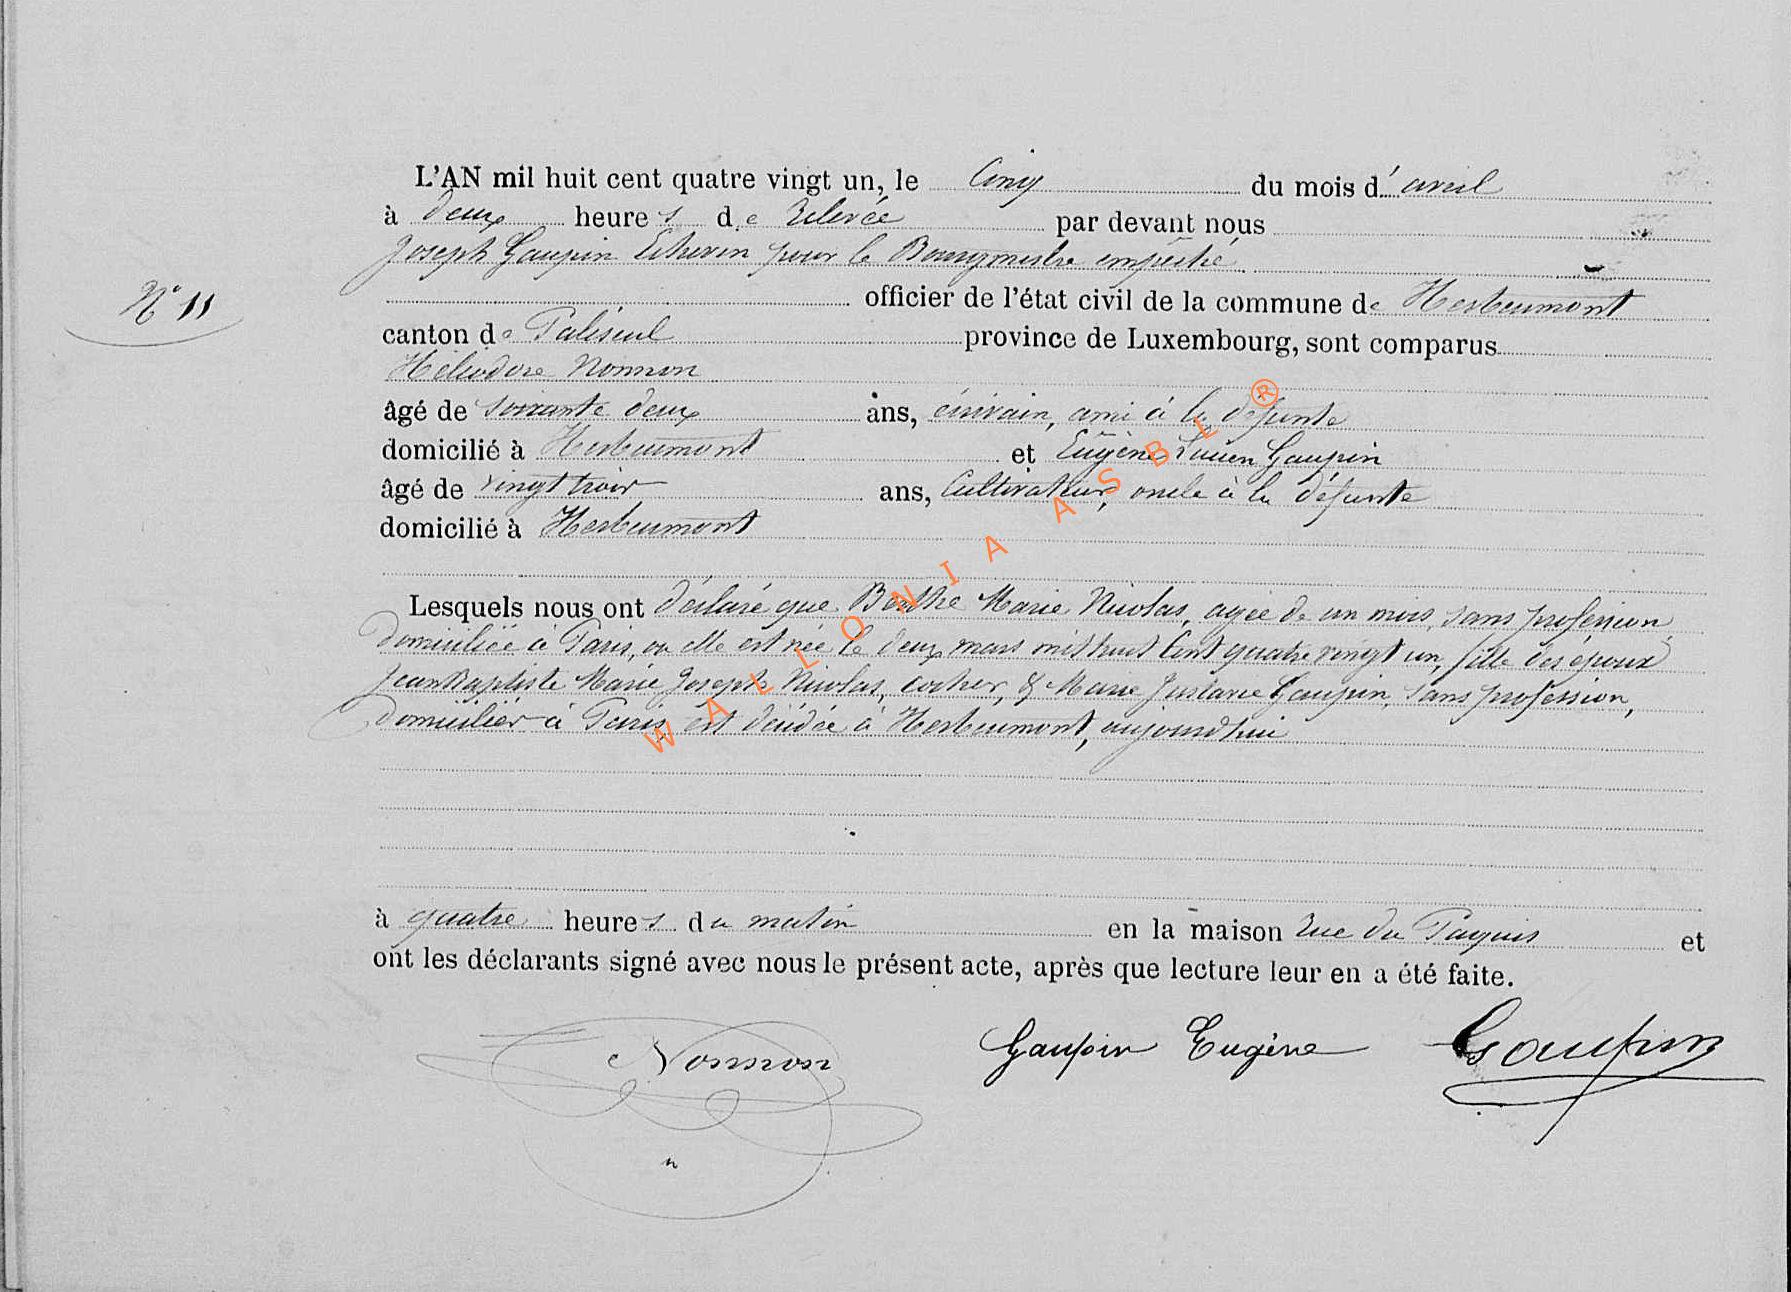 L'AN mil huit cent quatre vingt un, le Cinq du mois d'avril
à deux heures de Relevée par devant nous
Joseph Gaupin Echevin pour le Bourgmestre empêché
N° 11
officier de l'état civil de la commune de Herbeumont
canton de Paliseul province de Luxembourg, sont comparus
Héliodore Nonnon
âgé de soixante deux ans, écrivain, ami à la défunte
domicilié à Herbeumont et Eugène Lucien Gaupin
âgé de vingt trois ans, Cultivateur, oncle à la défunte
domicilié à Herbeumont
Lesquels nous ont déclaré que Berthe Marie Nicolas, agée de un mois, sans profession,
domiciliée à Paris, ou elle est née le deux mars mil huit cent quatre vingt un, fille des époux
Jean Baptiste Marie Joseph Nicolas, cocher, & Marie Gaupin, sans profession,
domiciliés à Paris, est décédée à Herbeumont, aujourd'hui
à quatre heures du matin en la maison Rue du Paquis et
ont les déclarants signé avec nous le présent acte, après que lecture leur en a été faite.
Nonnon Gaupin Eugène Gaupin
WALLONIA ASBL ®